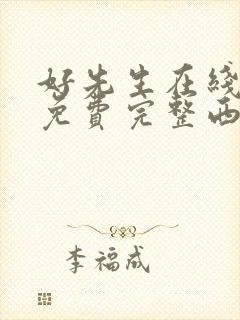 好先生在线
免费完整西
李福成